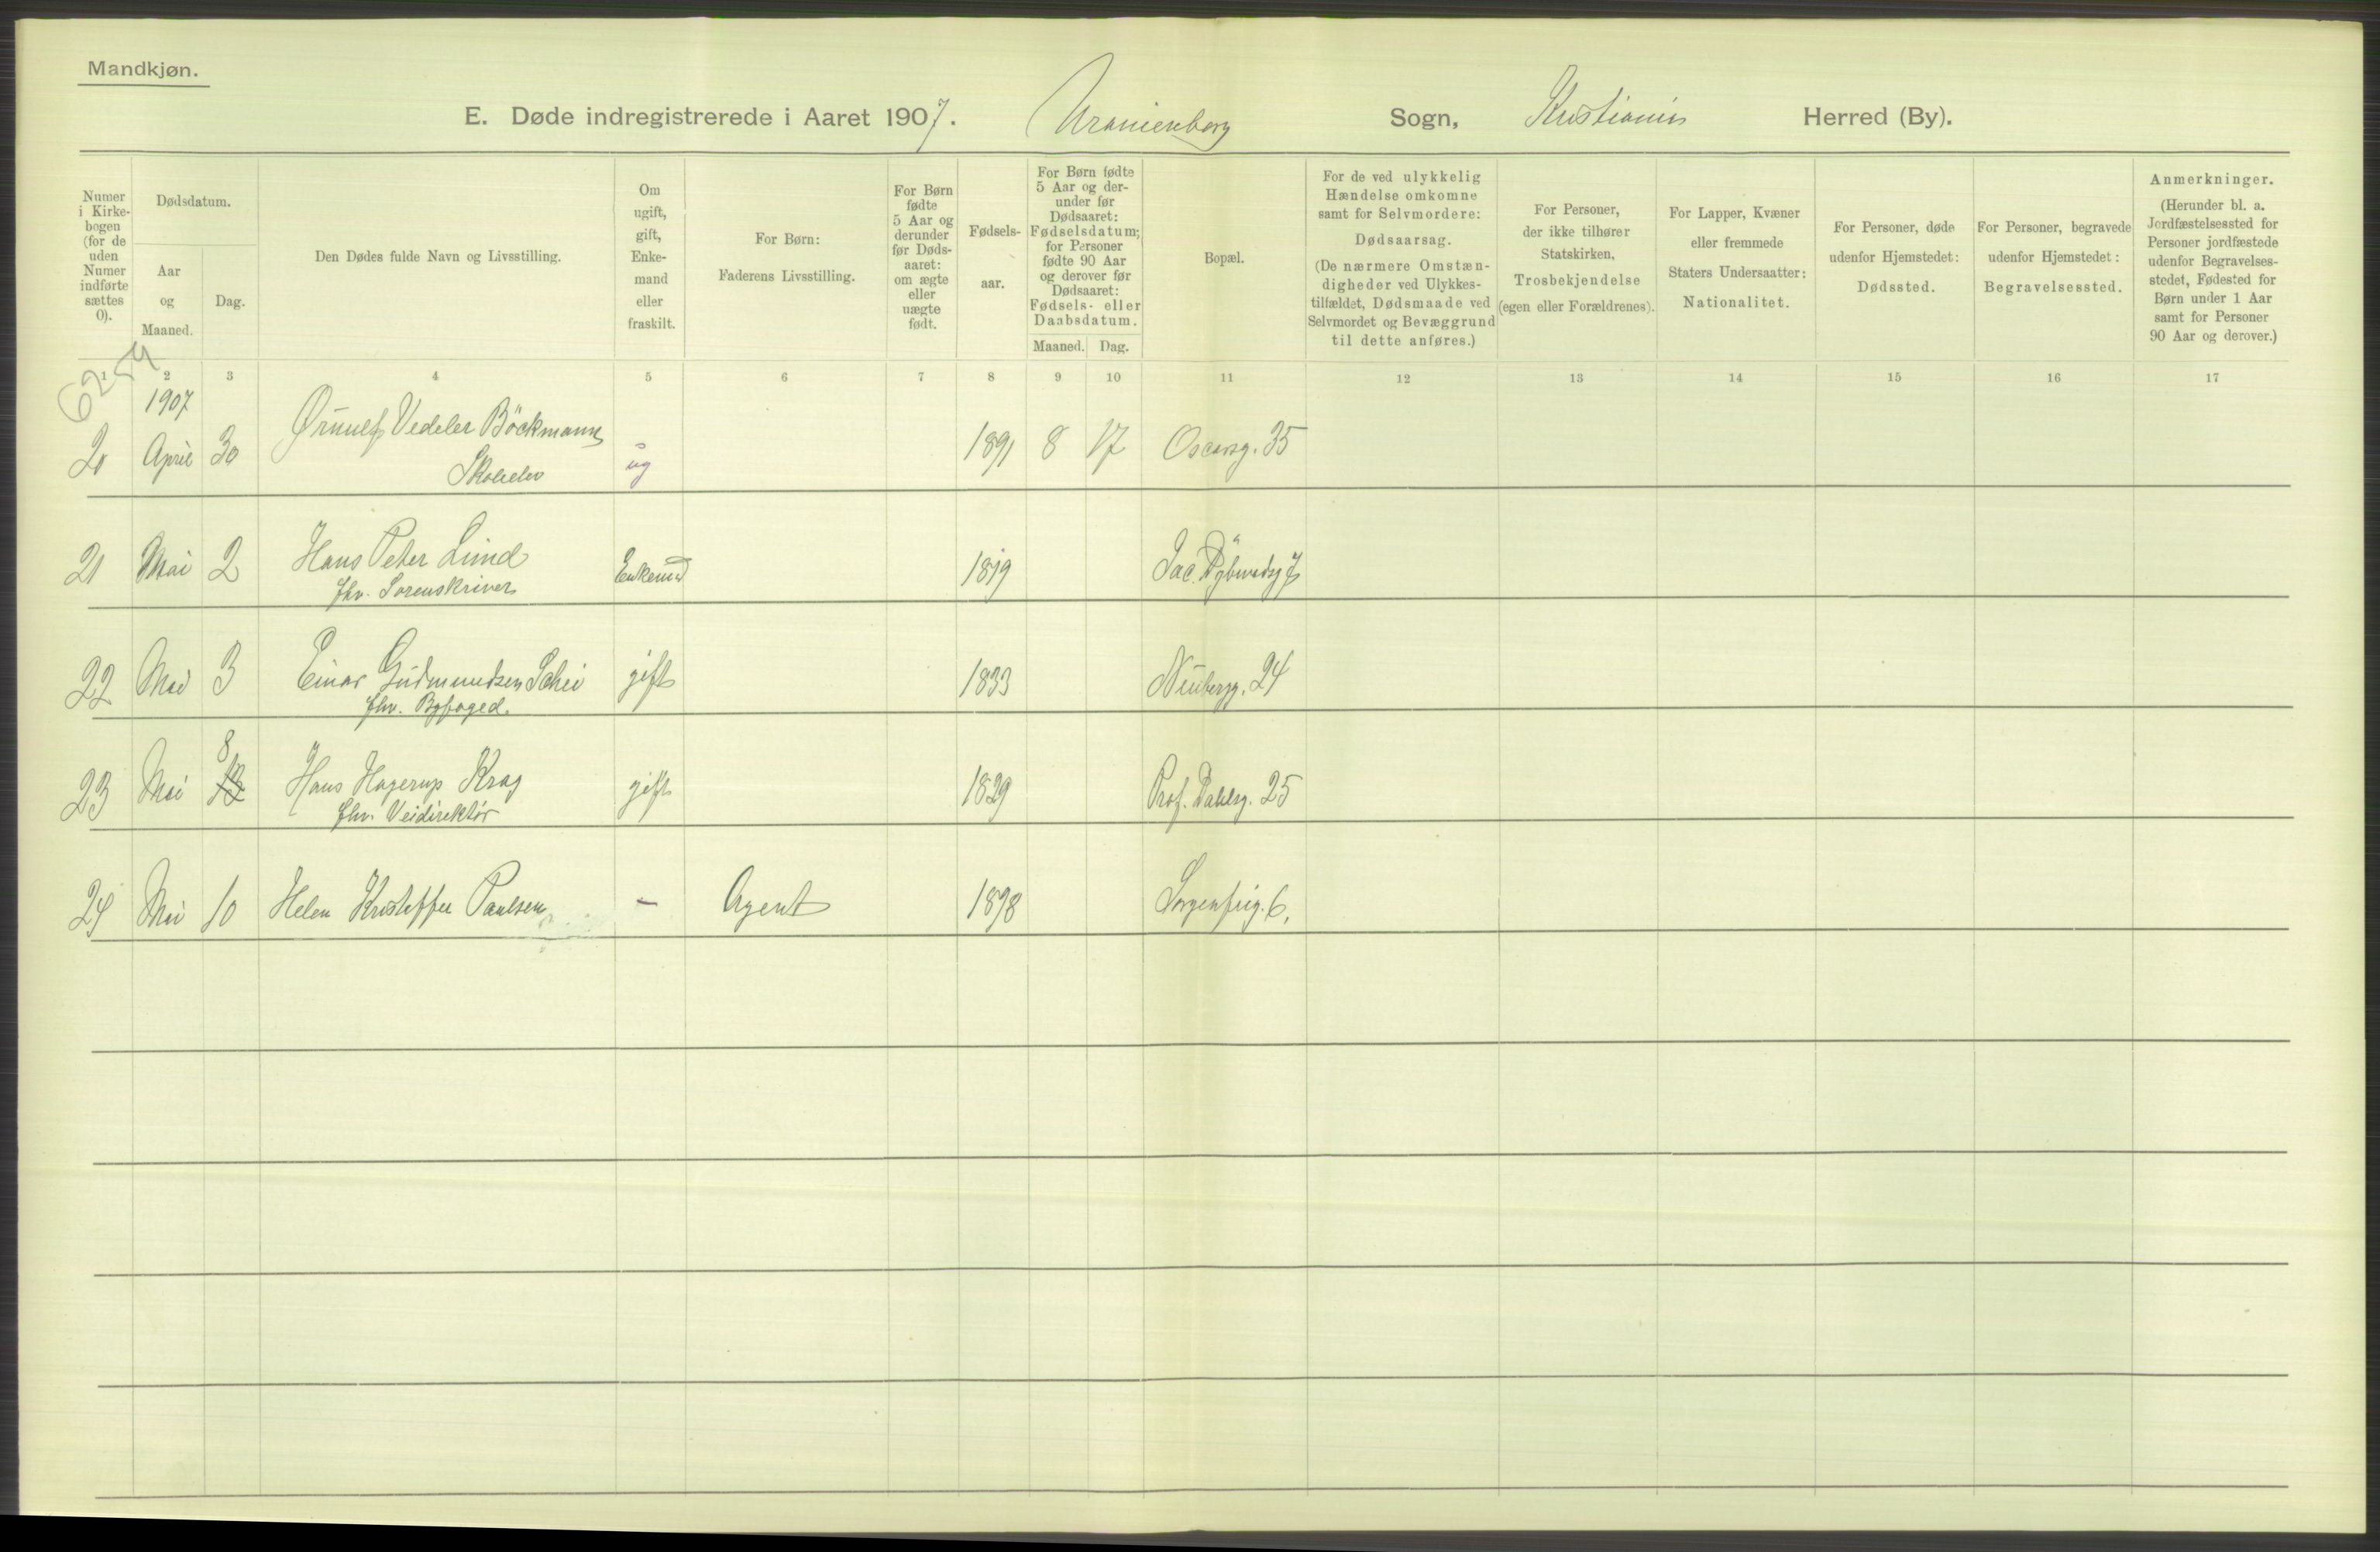 Mandkjøn.
E. Døde indregistrerede i Aaret 1907. Uranienborg Sogn, Kristiania Herred (By).
Numer i Kirkebogen (for de uden Numer indførte sættes 0).
Dødsdatum.
Aar og Maaned.
Dag.
Den Dødes fulde Navn og Livsstilling.
Om ugift, gift, Enkemand eller fraskilt.
For Børn: Faderens Livsstilling.
For Børn fødte 5 Aar og derunder før Dødsaaret: om ægte eller uægte født.
Fødselsaar.
For Børn fødte 5 Aar og derunder før Dødsaaret: Fødselsdatum; for Personer fødte 90 Aar og derover før Dødsaaret: Fødsels- eller Daabsdatum.
Maaned. Dag.
Bopæl.
For de ved ulykkelig Hændelse omkomne samt for Selvmordere: Dødsaarsag. (De nærmere Omstændigheder ved Ulykkestilfældet, Dødsmaade ved Selvmordet og Bevæggrund til dette anføres.)
For Personer, der ikke tilhører Statskirken, Trosbekjendelse (egen eller Forældrenes).
For Lapper, Kvæner eller fremmede Staters Undersaatter: Nationalitet.
For Personer, døde udenfor Hjemstedet: Dødssted.
For Personer, begravede udenfor Hjemstedet: Begravelsessted.
Anmerkninger. (Herunder bl. a. Jordfæstelsessted for Personer jordfæstede udenfor Begravelsesstedet, Fødested for Børn under 1 Aar samt for Personer 90 Aar og derover.)
1 2 3 4 5 6 7 8 9 10 11 12 13 14 15 16 17
1907
20 April 30 Ørnulf Vedeler Böckmann ug 1891 8 17 Oscarsg. 35
Skoleelev
21 Mai 2 Hans Peter Lund Enkemd 1819 Jac. Dybwadsg 7
fhv. Sorenskriver
22 Mai 3 Einar Gudmundsen Schei gift 1833 Neubergg. 24
fhv. Byfoged.
23 Mai 8 Hans Hagerup Krag gift 1829 Prof. Dahlsg. 25
fhv. Veidirektör
24 Mai 10 Helen Kristoffer Paulsen — Agent 1898 Sorgenfrig. 6.